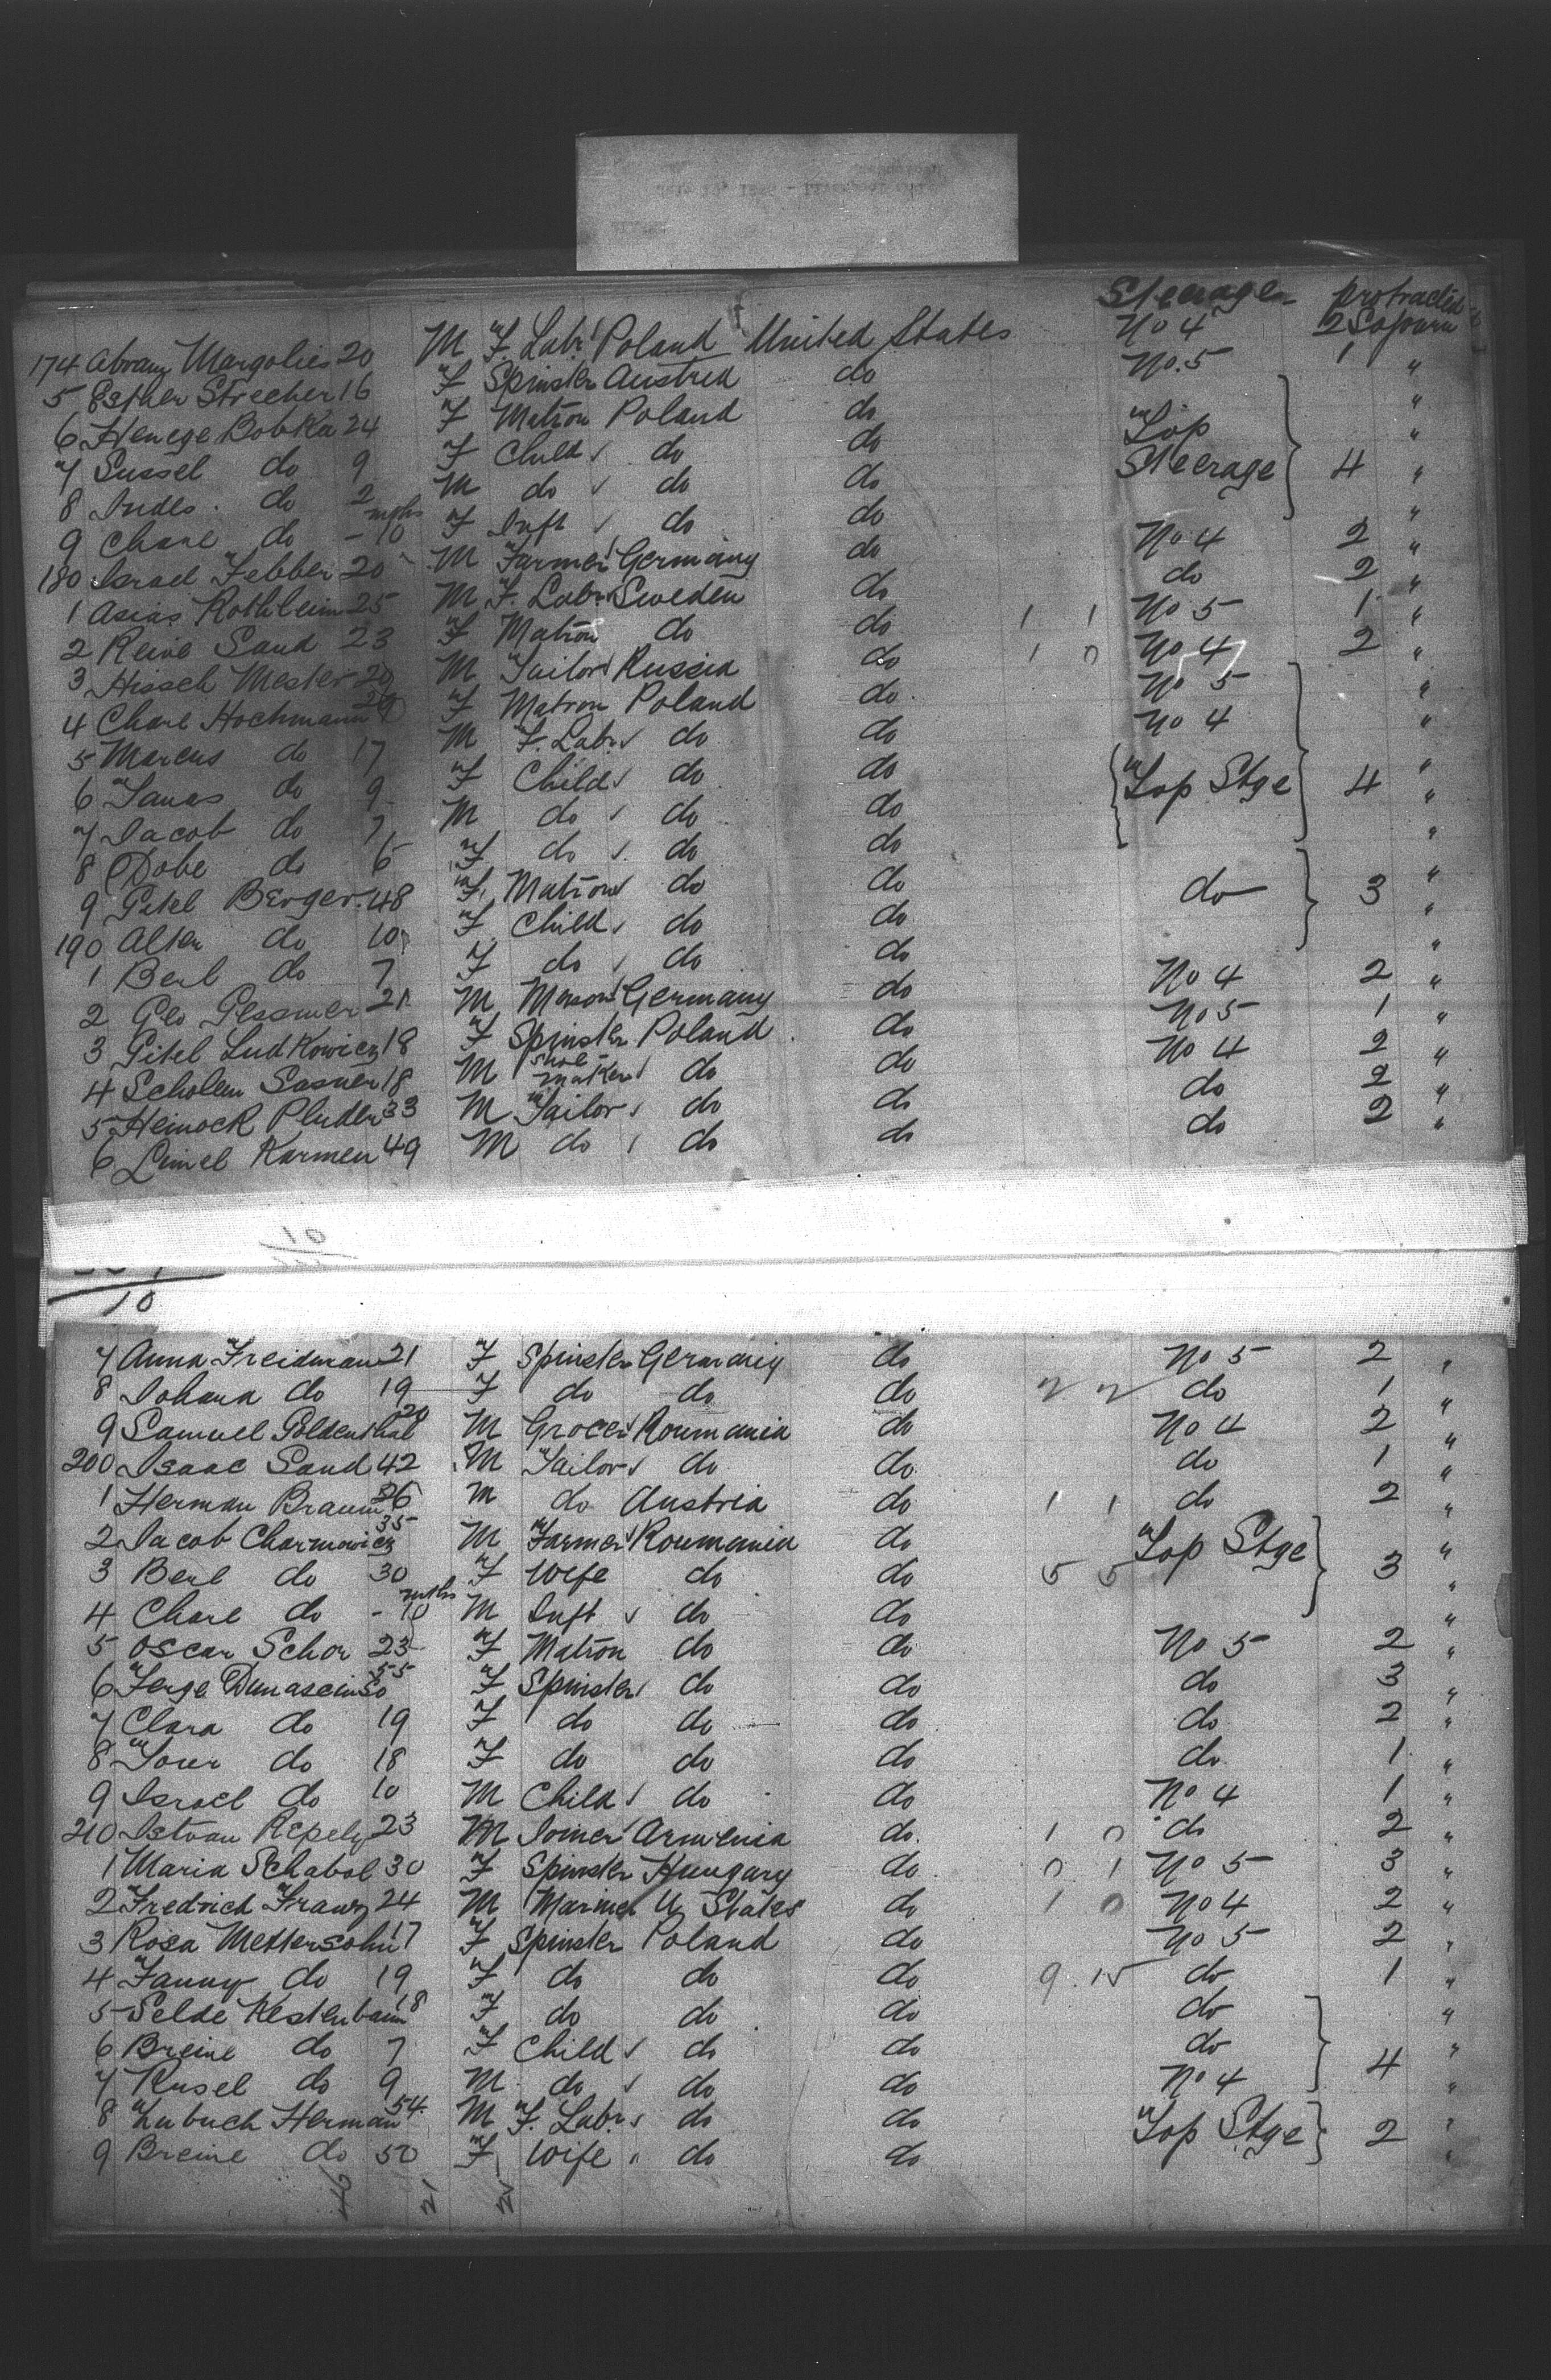 174 Abram Margolies 20 M F. Labr Poland United States Steerage No 4 protracted 2 Sojourn
5 Esther Strecher 16 F Spinster Austria do No. 5 1 "
6 Henege Bobka 24 F Matron Poland do "
7 Sussel do 9 F Child do do Top "
8 Judes do 2 M do do do Steerage 4 "
9 Chare do - 10 mths F Inft do do "
180 Israel Febber 20 M Farmer Germany do No 4 2 "
1 Asias Rothleim 25 M F. Labr Sweden do do 2 "
2 Reive Sand 23 F Matron do do 1 1 No 5 1 "
3 Hissch Mester 20 M Tailor Russia do 1 0 No 4 2 "
4 Chare Hochmann 29 F Matron Poland do No 5 "
5 Marcus do 17 M F. Labr do do No 4 "
6 Tauas do 9 F Child do do "
7 Jacob do 7 M do do do Top Stge 4 "
8 Dobe do 5 F do do do "
9 Gitel Berger 48 F Matron do do "
190 Alten do 10 F Child do do do 3 "
1 Berl do 7 F do do do "
2 Geo Gessmer 21 M Mason Germany do No 4 2 "
3 Gitel Ludkowicz 18 F Spinster Poland do No 5 1 "
4 Scholem Sasner 18 M Shoemaker do do No 4 2 "
5 Heinock Pluder 33 M Tailor do do do 2 "
6 Limel Karmen 49 M do do do do 2 "
10
7 Anna Freidman 21 F Spinster Germany do No 5 2 "
8 Johana do 19 F do do do 2 2 do 1 "
9 Samuel Goldenthal 20 M Grocer Roumania do No 4 2 "
200 Isaac Sand 42 M Tailor do do do 1 "
1 Herman Braum 26 M do Austria do 1 1 do 2 "
2 Jacob Charmowicz 35 M Farmer Roumania do Top Stge "
3 Berl do 30 F Wife do do 5 5 3 "
4 Chare do - 10 mths M Inft do do "
5 Oscar Schor 23 F Matron do do No 5 2 "
6 Ferge 55 F Spinster do do do 3 "
7 Clara do 19 F do do do do 2 "
8 do 18 F do do do do 1 "
9 Israel do 10 M Child do do No 4 1 "
210 Istvan Repely 23 M Joiner Armenia do 1 0 do 2 "
1 Maria Schabol 30 F Spinster Hungary do 0 1 No 5 3 "
2 Fredrich Frawz 24 M Mariner U States do 1 0 No 4 2 "
3 Rosa Mettersohn 17 F Spinster Poland do No 5 2 "
4 Fanny do 19 F do do do 9. 15 do 1 "
5 Selde Kestenbaum 18 F do do do do "
6 Breine do 7 F Child do do do "
7 Rusel do 9 M do do do No 4 4 "
8 Lubuch Herman 54 M F. Labr do do Top Stge 2 "
9 Breine do 50 F Wife do do "